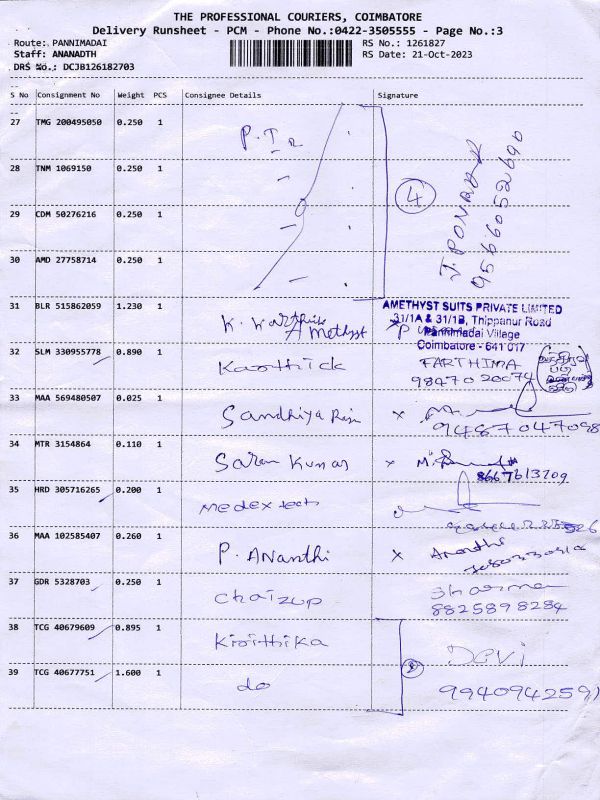 THE PROFESSIONAL COURIERS, COIMBATORE
Delivery Runsheet - PCM - Phone No.:0422-3505555 - Page No.:3
Route: PANNIMADAI RS No.: 1261827
Staff: ANANADTH RS Date: 21-Oct-2023
DRS No.: DCJB126182703
S No Consignment No Weight PCS Consignee Details Signature
27 TMG 200495050 0.250 1 P.T.R
28 TNM 1069150 0.250 1
29 CDM 50276216 0.250 1
30 AMD 27758714 0.250 1
4
J. PONRAJ
9566052690
31 BLR 515862059 1.230 1 K. Karthik
Amethyst
AMETHYST SUITS PRIVATE LIMITED
31/1A & 31/1B, Thippanur Road
Pannimadai Village
Coimbatore - 641 017
32 SLM 330955778 0.890 1 Karthick FARTHIMA
9847020074
33 MAA 569480507 0.025 1 Sandhiya x
9487047098
34 MTR 3154864 0.110 1 Saran Kumar x
8667613209
35 HRD 305716265 0.200 1 medex tech
36 MAA 102585407 0.260 1 P. Ananthi x Ananthi
37 GDR 5328703 0.250 1 Chaizup Sharma
8825898284
38 TCG 40679609 0.895 1 Kirithika Devi
39 TCG 40677751 1.600 1 do 9940942591